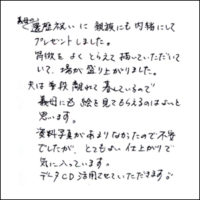 義母の
還暦祝いに親族にも内緒にして
プレゼントしました。
特徴をよくとらえて描いていただいて
いて、場が盛り上がりました。
夫は普段離れて暮らしているので
義母にも絵を見てもらえるのはよいと
思います。
資料写真があまりなかったので不安
でしたが、とてもよい仕上がりで
気に入っています。
データCD活用させていただきます